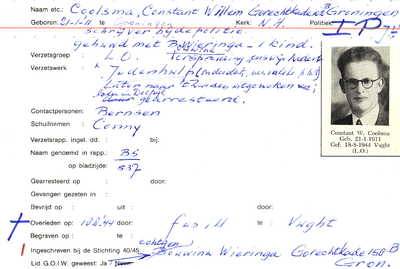 Naam etc.: Coolsma, Constant Willem Gorechtkade 158B Groningen
Geboren: 21-1-11 te Groningen Kerk: N.H. Politiek:
schrijver bij de politie
gehuwd met Bouwina Wieringa - 1 kind.
Verzetsgroep: L.O. Verspreiding
Verzetswerk: Jodenhulp
later naar uitgeweken en
gearresteerd.
Contactpersonen: Bernsen
Schuilnmmen: Conny
Verzetsrapp. ingel. dd.: bij:
Naam genoemd in rapp.: BS
op bladzijde: 837
Gearresteerd op: door:
Gevangen gezeten in:
Bevrijd op: uit: door:
Overleden op: 18-8-'44 door: fusill te: Vught
Begraven op: te:
Ingeschreven bij de Stichting 40/45: echtgen Bouwina Wieringa Gorechtkade 158-B
Lid G.O.I.W. geweest: Ja Neen Gron.
Constant W. Coolsma
Geb. 21-1-1911
Gef. 18-8-1944 Vught
(L.O.)